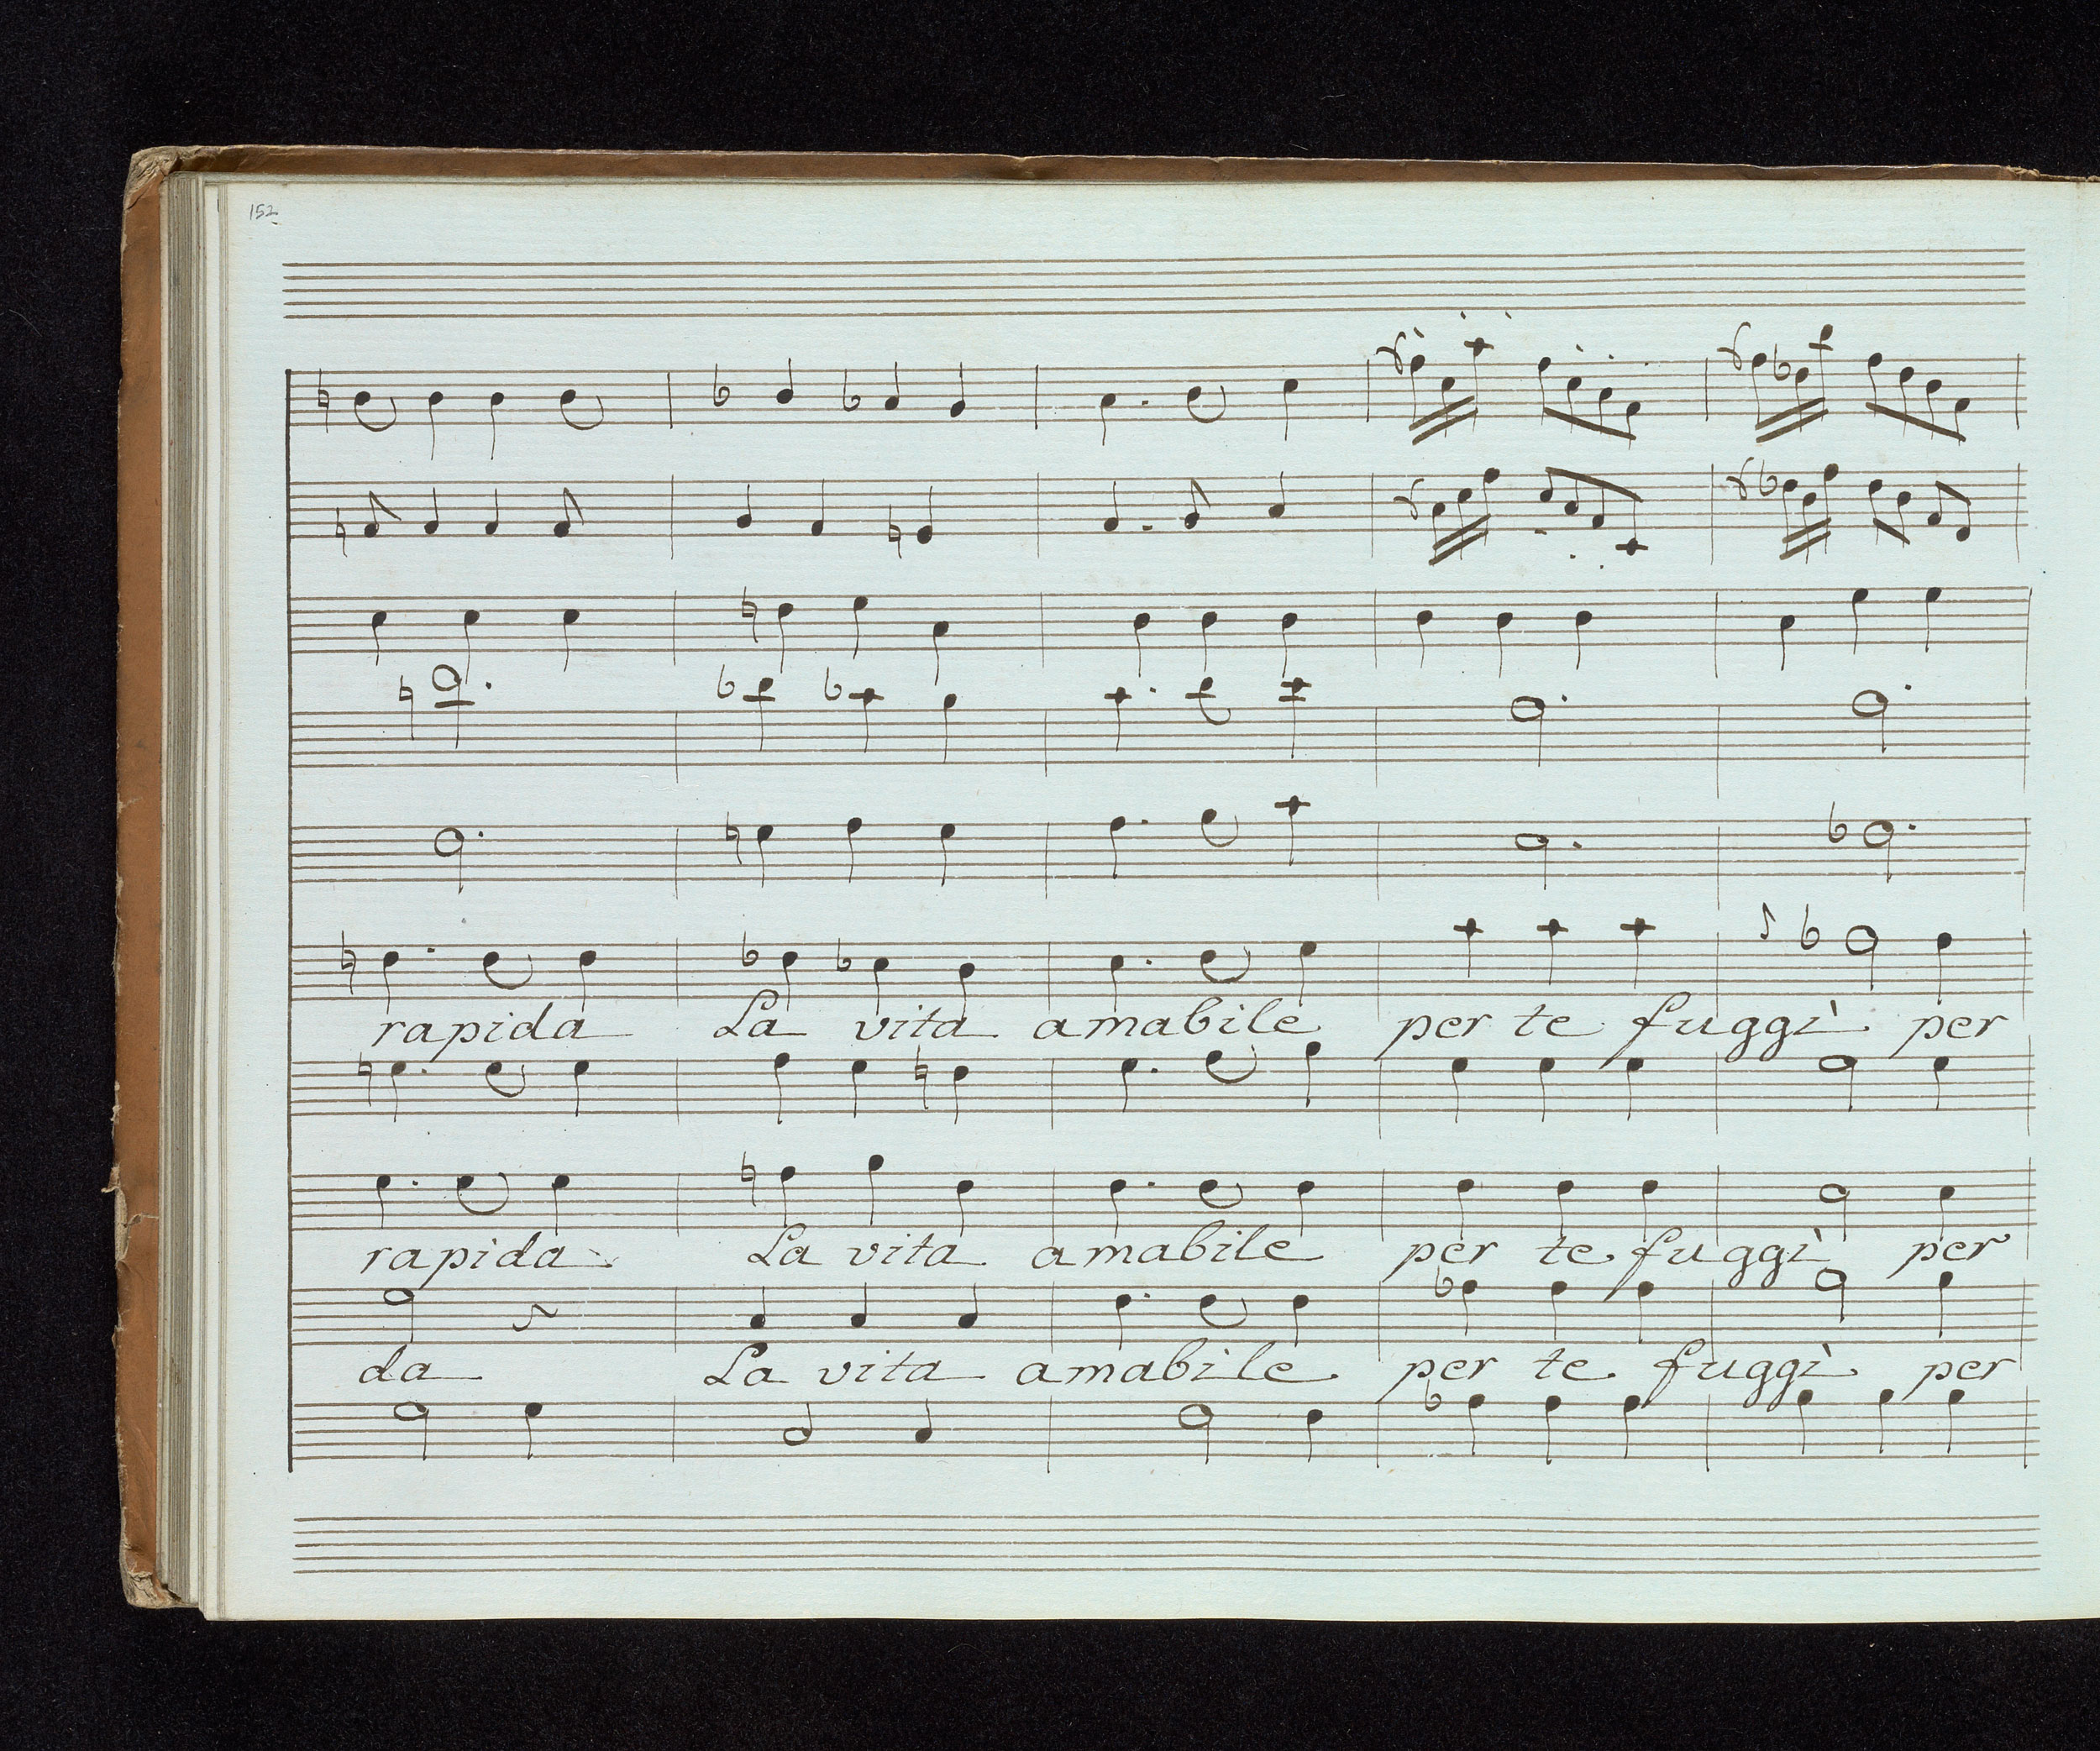 152
rapida La vita amabile per te fuggì per
rapida La vita amabile per te fuggì per
da La vita amabile per te fuggì per